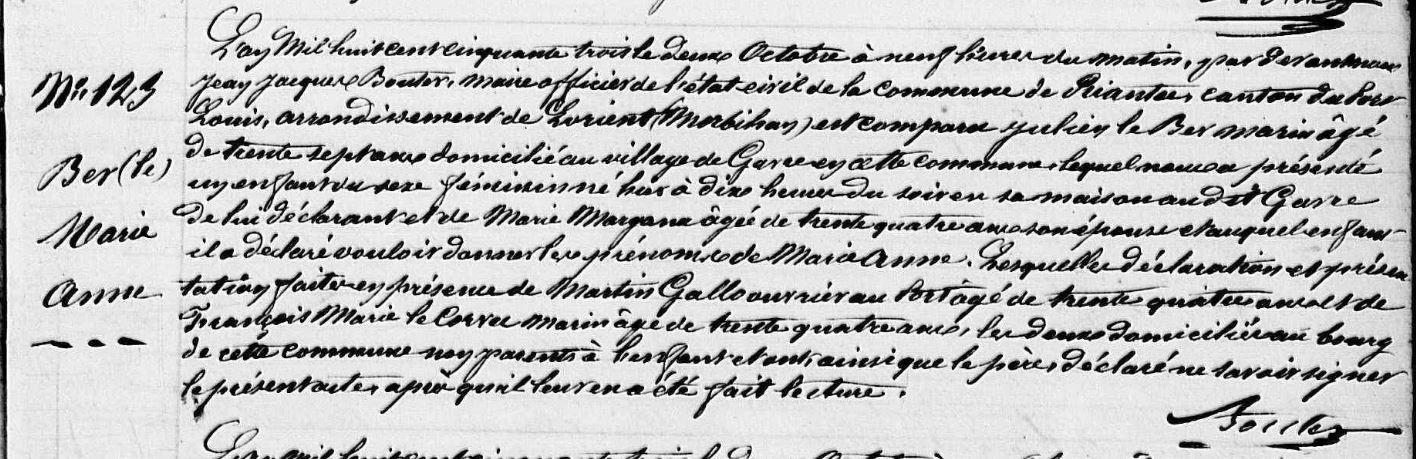 N°. 123
Ber (le)
Marie
Anne
L'an Mil huit cent cinquante trois le deux Octobre à neuf heures du matin, par devant nous
Jean Jacques Bouter, maire officier de l'état-civil de la commune de Riantec, canton du Port
Louis, arrondissement de Lorient (Morbihan) est comparu Julien le Ber marin âgé
de trente sept ans domicilié au village de Gavre en cette commune, lequel nous a présenté
un enfant du sexe féminin né hier à dix heures du soir en sa maison audit Gavre
de lui déclarant et de Marie Margana âgée de trente quatre ans son épouse et auquel enfant
il a déclaré vouloir donner les prénoms de Marie Anne. Lesquelles déclaration et présen
tation faites en présence de Martin Gallo ouvrier au Port âgé de trente quatre ans et de
François Marie le Corvec marin âgé de trente quatre ans, les deux domiciliés au bourg
de cette commune non parents à l'enfant et ont ainsi que le père, déclaré ne savoir signer
le présent acte, après qu'il leur en a été fait lecture.
Bouter
L'an mil huit cent cinquante trois le deux Octobre à